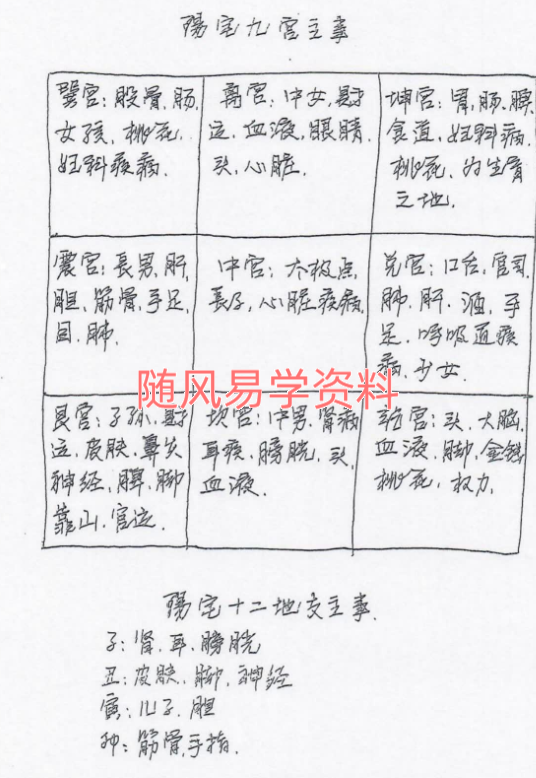 陽宅九宮主事
巽宮：股骨.肠.
女孩，桃花.
妇科疾病.
离宮：中女，财
运.血液.眼睛.
头.心脏.
坤宮：胃.肠.脾
食道，妇科病
桃花，为生育
之地.
震宮：長男，肝，
胆，筋骨，手足，
目.肺.
中宮：太极点，
長子，心脏疾病，
兑宮：口台，官司
肺，肝.酒，手
足.呼吸道疾
病，少女.
随风易学资料
艮宮：子孙.财
运，皮肤.鼻炎
神经，脾.脚
靠山.官运.
坎宮：中男，肾病
耳疾.膀胱，头，
血液.
宮：头，大脑，
血液.脚，金钱
桃花，权力，
陽宅十二地支主事.
子：肾.耳.膀胱
丑：皮肤.脚.神经
寅：儿子.胆
卯：筋骨，手指.